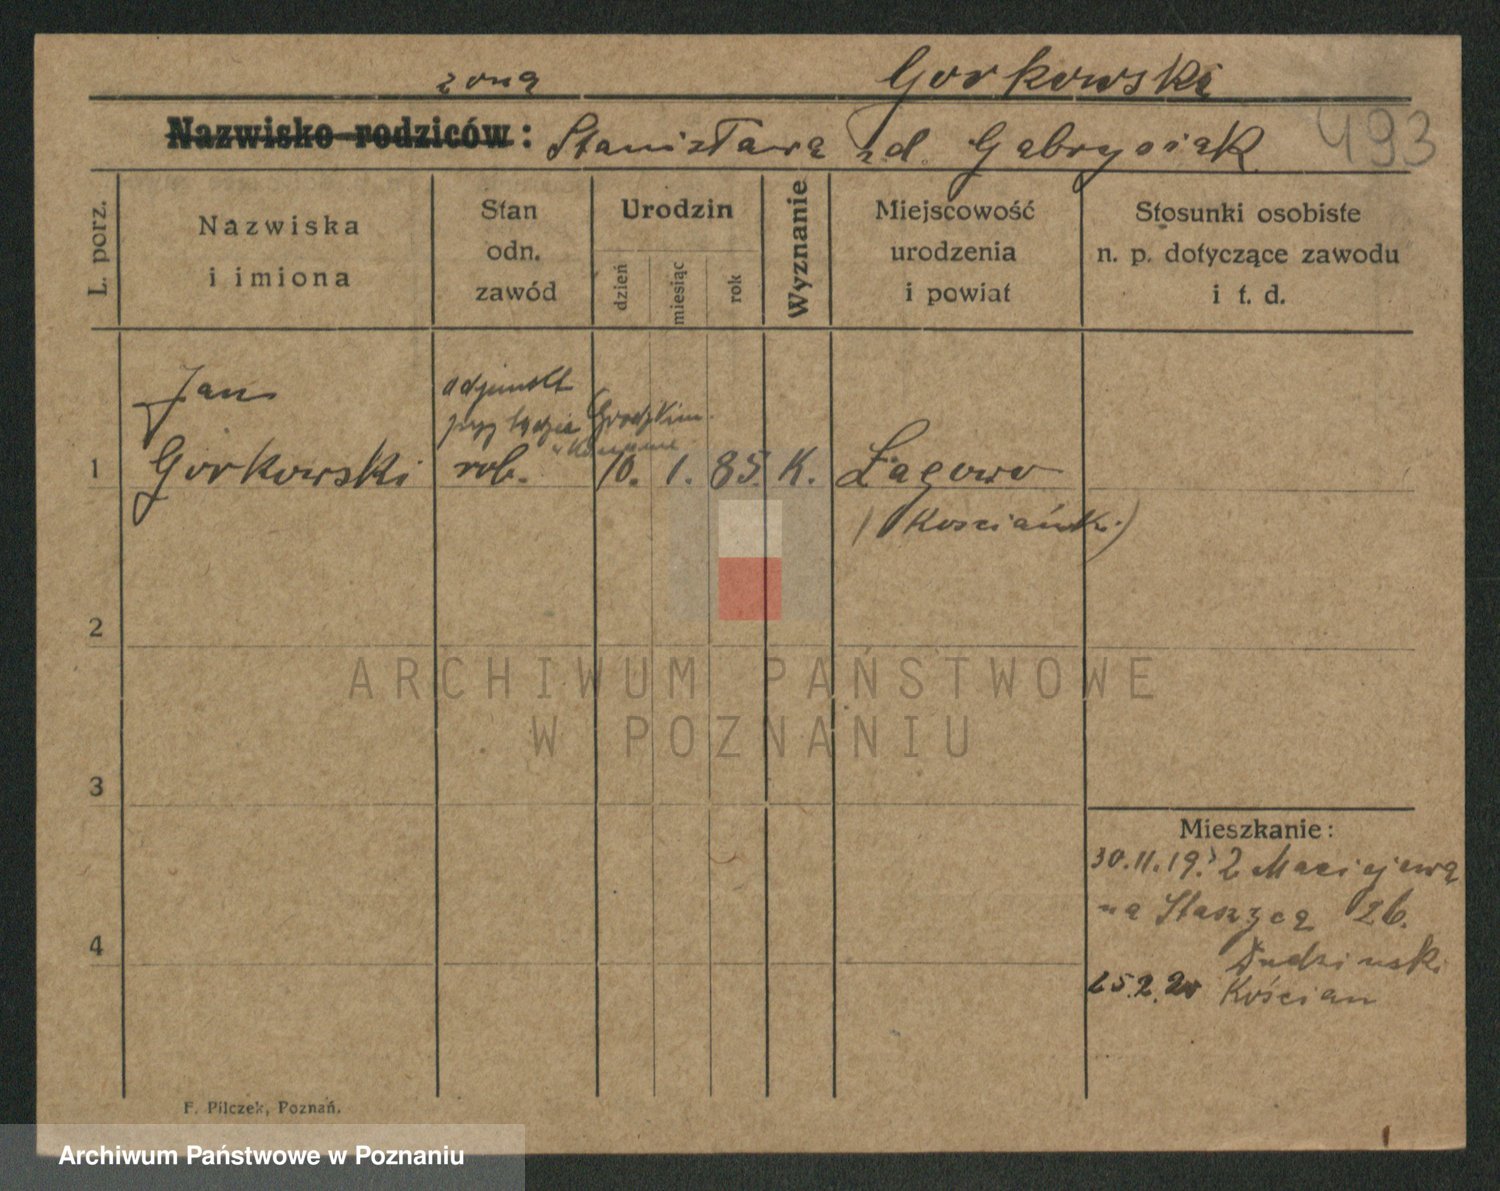 żona Gorkowski
Nazwisko rodziców: Stanisława zd. Gabrysiak 493
L. porz.
Nazwiska
i imiona
Stan
odn.
zawód
Urodzin
dzień
miesiąc
rok
Wyznanie
Miejscowość
urodzenia
i powiat
Stosunki osobiste
n. p. dotyczące zawodu
i t. d.
Jan
przy Sądzie Grodzkim
1 Gorkowski rob. 10. 1. 85. K. Łagowo
(Kosciański)
2
ARCHIWUM PAŃSTWOWE
W POZNANIU
3
Mieszkanie:
30.11.19. z Maciejewa
na Staszca 26.
4
Dudzinski
25.2.20 Kościan
F. Pilczek, Poznań.
1
Archiwum Państwowe w Poznaniu